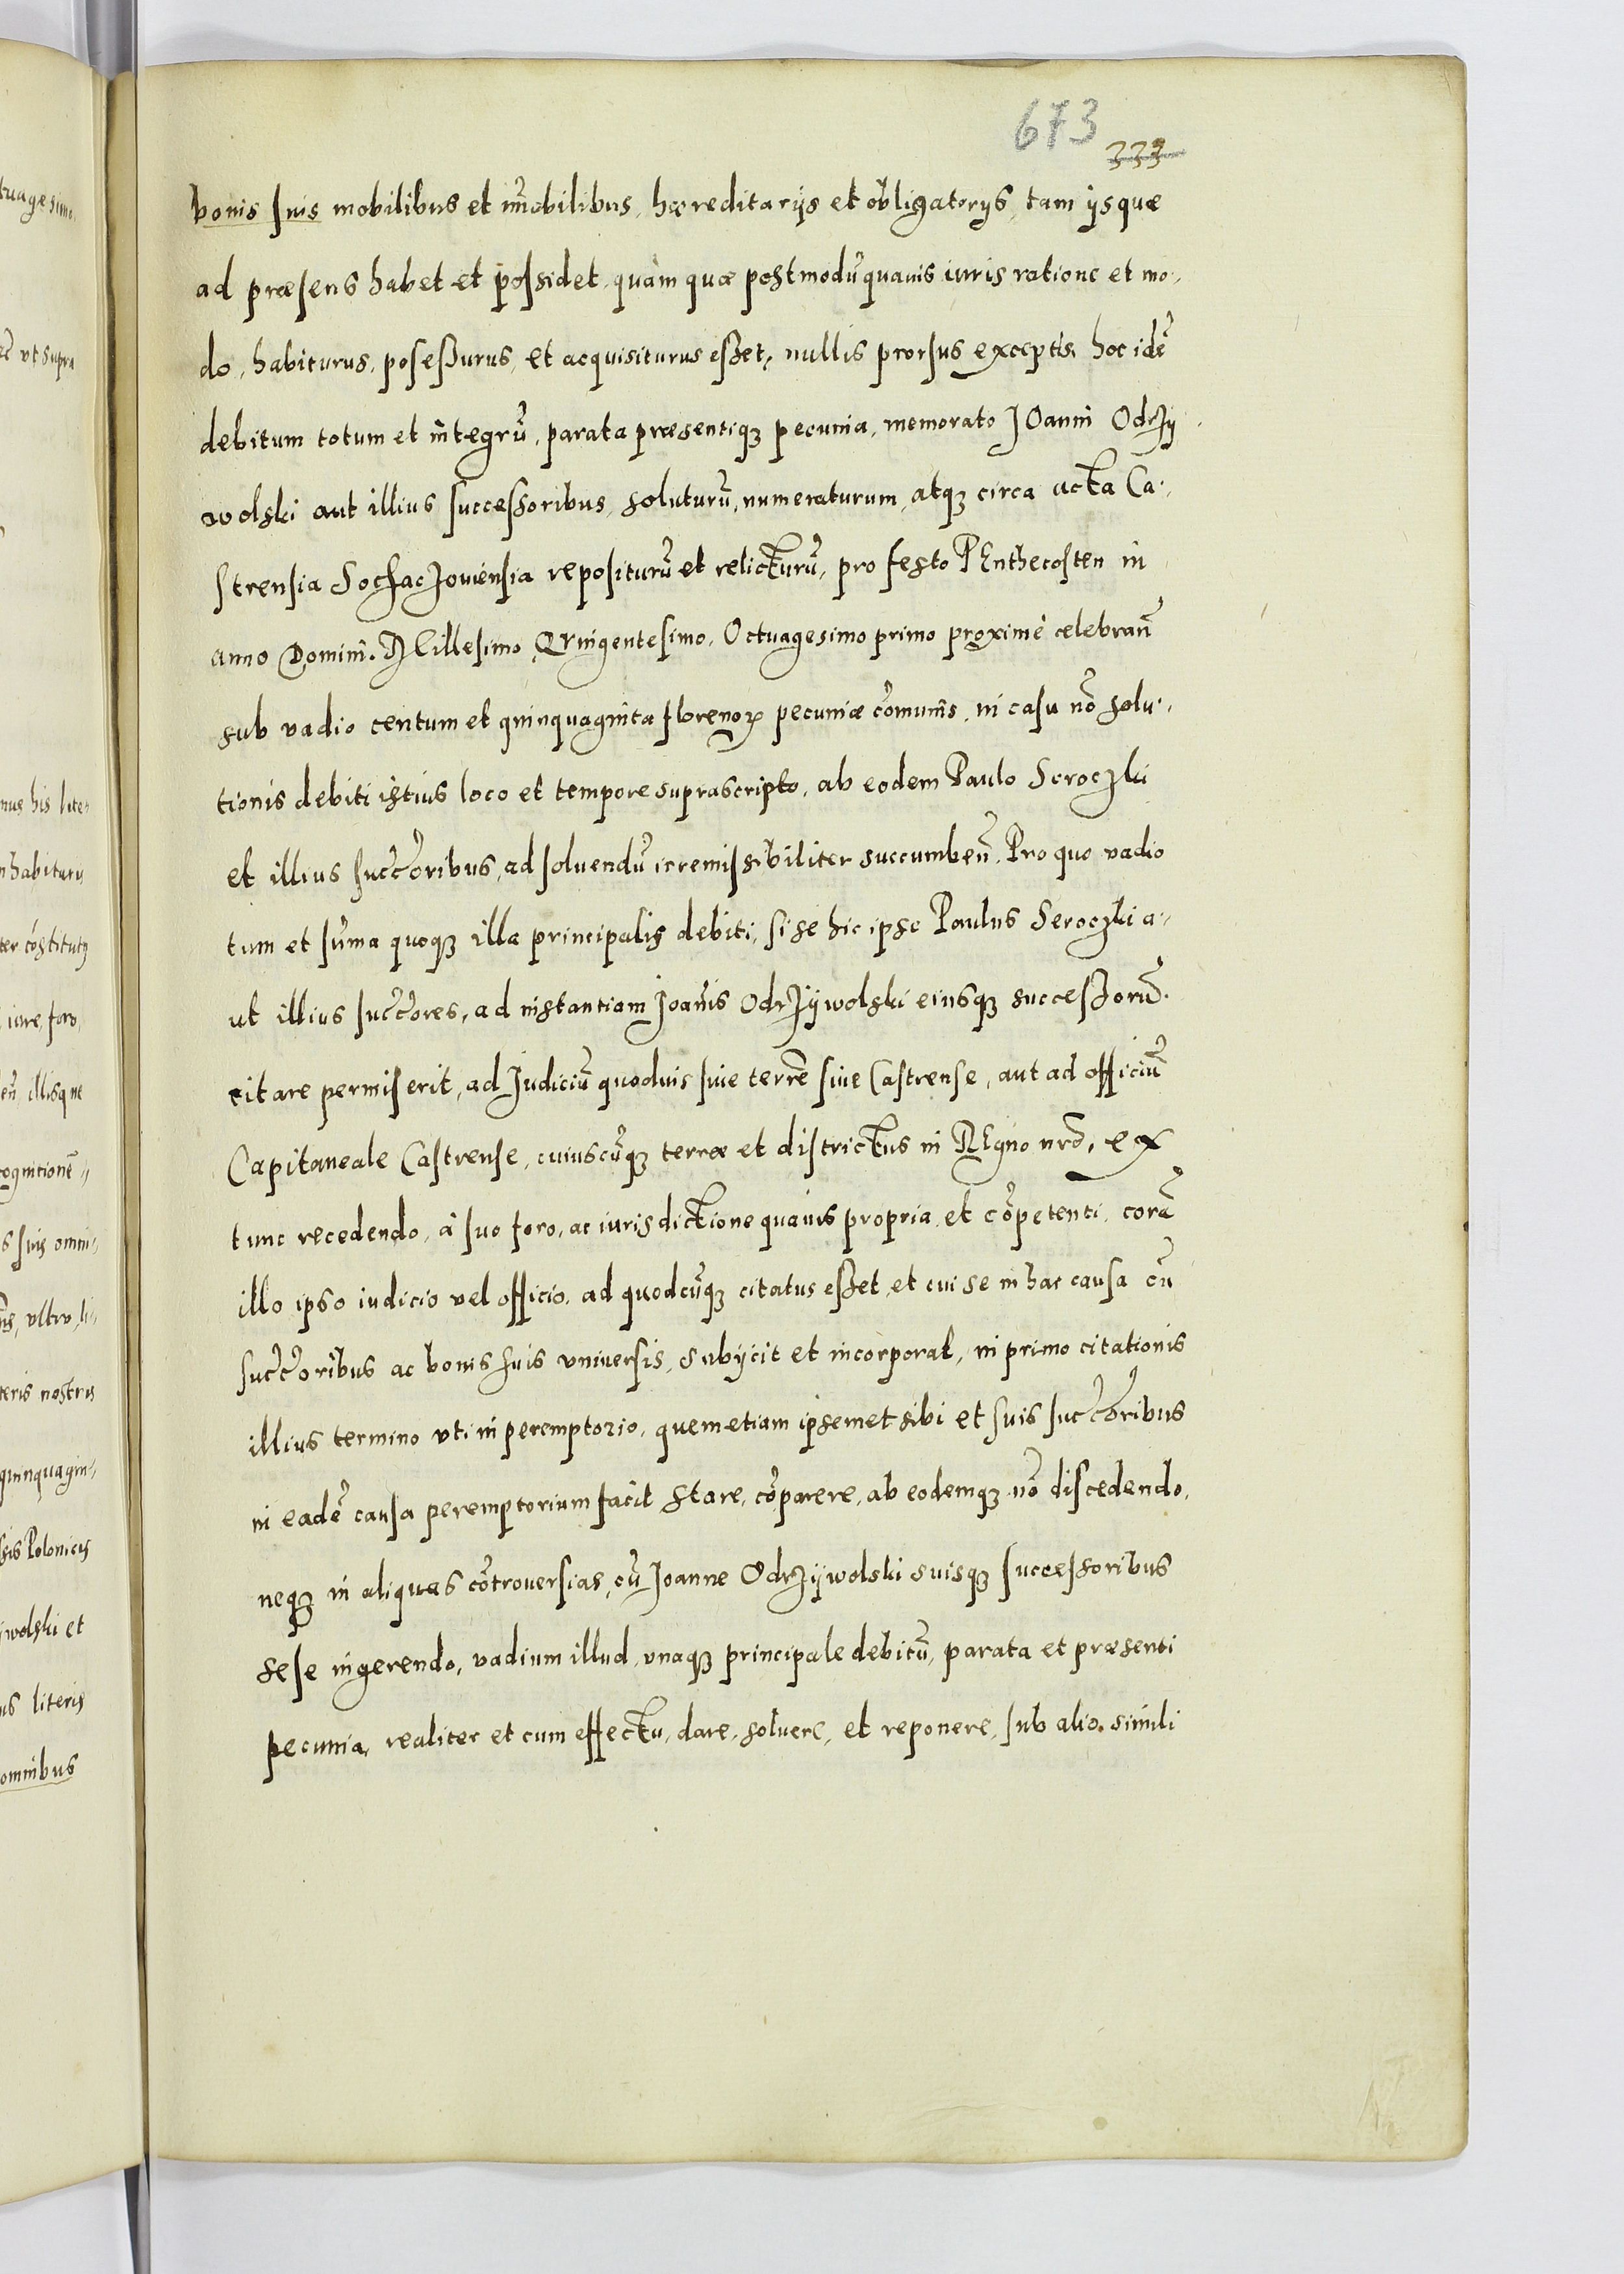 673
333
bonis suis mobilibus et im̃obilibus, hæreditarijs et obligatorijs, tam ijs quæ
ad præsens habet et possidet, quàm quæ postmodũ quauis iuris ratione et mo-
do, habiturus, posessurus, et acquisiturus esset, nullis prorsus exceptis, hoc idẽ
debitum totum et integrũ, parata præsentiqȝ pecunia, memorato IOanni Odrzy
wolski aut illius successoribus, soluturũ, numeraturum, atqȝ circa acta Ca-
strensia Sochaczouiensia repositurũ et relicturũ, pro festo PEnthecosten in
anno Domini. Millesimo Quingentesimo, Octuagesimo primo proximè celebrañ
sub vadio centum et quinquaginta florenoꝝ pecuniæ cõmunis, in casu nõ solu-
tionis debiti istius loco et tempore suprascripto, ab eodem Paulo Seroczki
et illius succ̃oribus, ad soluendũ irremissibiliter succumbeñ. Pro quo vadio
tum et sum̃a quoqȝ illa principalis debiti, si se hic ipse Paulus Seroczki a-
ut illius succ̃ores, ad instantiam Joañis Odrzÿwolski eiusqȝ successorũ
citare permiserit, ad Judiciũ quoduis siue terrẽ siue Castrense, aut ad officiũ
Capitaneale Castrense, cuiuscũqȝ terræ et districtus in REgno nrõ, ex
tunc recedendo, à suo foro, ac iurisdictione quauis propria et cõpetenti, corã
illo ipso iudicio vel officio, ad quodcũqȝ citatus esset, et cui se in hac causa cũ
succ̃oribus ac bonis suis vniuersis, subijcit et incorporat, in primo citationis
illius termino vti in peremptorio, quem etiam ipsemet sibi et suis succ̃oribus
in eadẽ causa peremptorium facit stare, cõparere, ab eodemqȝ nõ discedendo,
neqȝ in aliquas cõtrouersias, cũ Joanne Odrzÿwolski suisqȝ successoribus
sese ingerendo, vadium illud, vnaqȝ principale debitũ, parata et præsenti
pecunia, realiter et cum effectu, dare, soluere, et reponere, sub alio simili